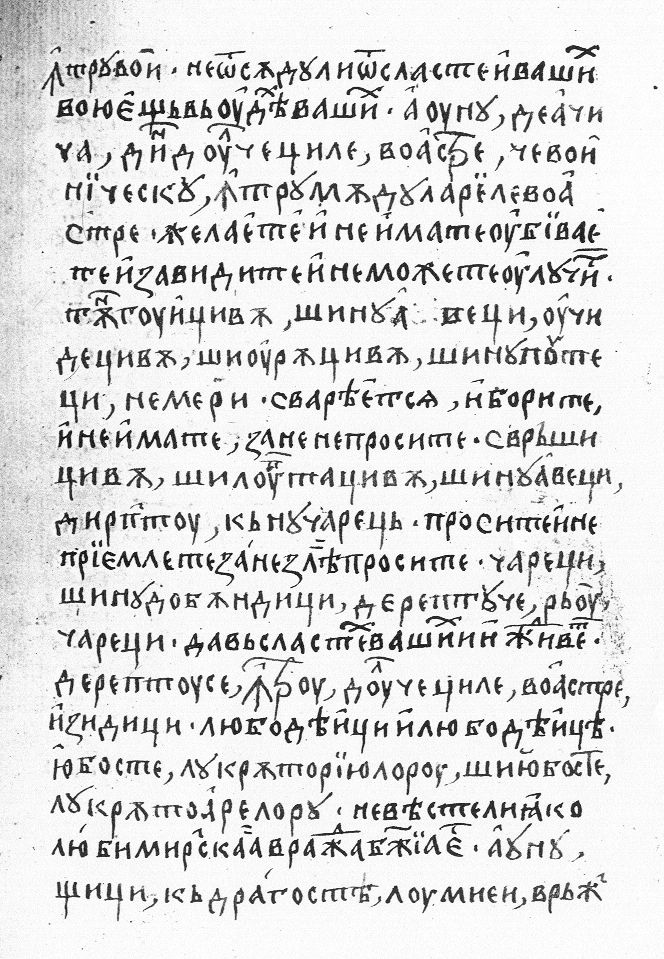 ꙟтрꙋвои҆ · неѿсѧдꙋлиѿсластеи҆ваши̑х
воюѐщьвьоу҆дѣ̑хваши̑х · а҆оунꙋ, деа҆чи
ча, ди̑ндоу̑лчециле, воа҆стре, чевои҆
нїческꙋ, ꙟтрꙋмѧдꙋларёлевоа҆
стре · желае҆теи҆ неи҆матеоу҆бївае҆
теи҆завидитеи҆неможетеоу҆лꙋчи̑ти ·
пѫ̑нгоуи҆цивѫ, шинꙋа҆ веци, оу҆чи
децивѫ, шиоу҆рѫцивѫ, шинꙋпоу̑те
ци, немери · сварѣе҆тсѧ, и҆борите,
и҆неи҆мате, заненепросите · сврьши
цивѫ, шилоу̑птацивѫ, шинꙋа҆веци,
дирⷫ҇птоу, кьнꙋчарець · проситеи҆не
прїе҆млетезанезлѣпросите · чареци,
шинꙋдобѫндици, дерептꙋче, рьоу҆,
чареци · давьсласте̑хваши̑хии҆жиⷣве̑те ·
дерептоусе, ꙟтроу, доу̑лчециле, воа҆стре,
и҆зидици · любодѣи҆ции҆любодѣи҆цѣ ·
ю҆босте, лꙋкрѫторїюлороу, шию҆босте,
лꙋкрѫтоа҆релорꙋ · невѣстелиꙗ҆ко
любимирскаавражⷣабж҃їае҆сть · а҆ꙋнꙋ,
щици, кьдрагостѣ, лоумиеи, врьжⸯ